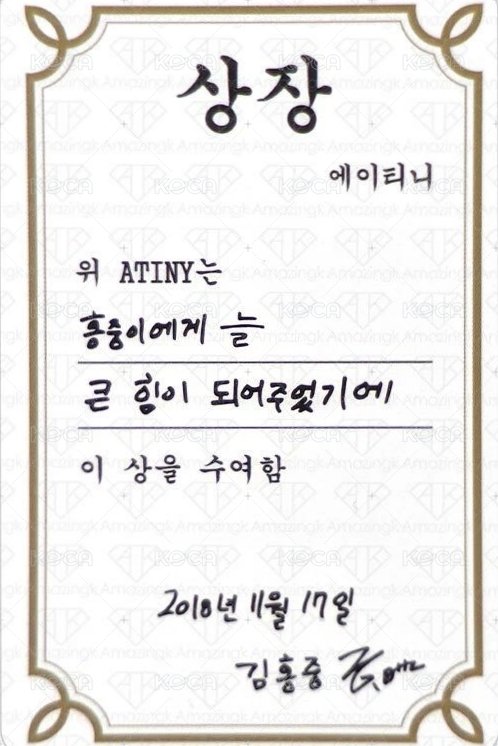 상장
에이티니
위 ATINY는
홍중이에게 늘
큰 힘이 되어주었기에
이 상을 수여함
2018년 11월 17일
김홍중